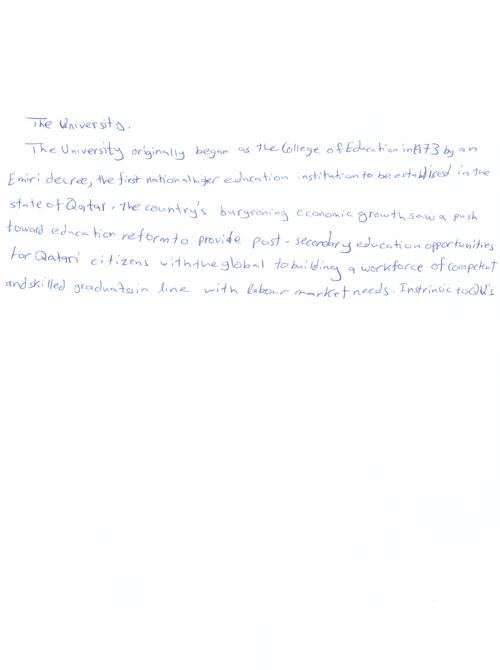 The University.
The University originally began as the College of Education in 1973 by an
Emiri decree, the first national higer education institution to be established in the
state of Qatar. The country's burgeoning economic growth saw a push
toward education reform to provide post-secondary education opportunities
for Qatari citizens with the global to building a workforce of competent
and skilled graduates in line with labour market needs. Instrinsic to QU's